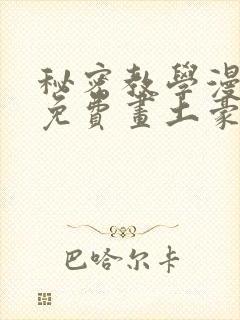 秘密教學漫
免費畫土豪
巴哈尔卡